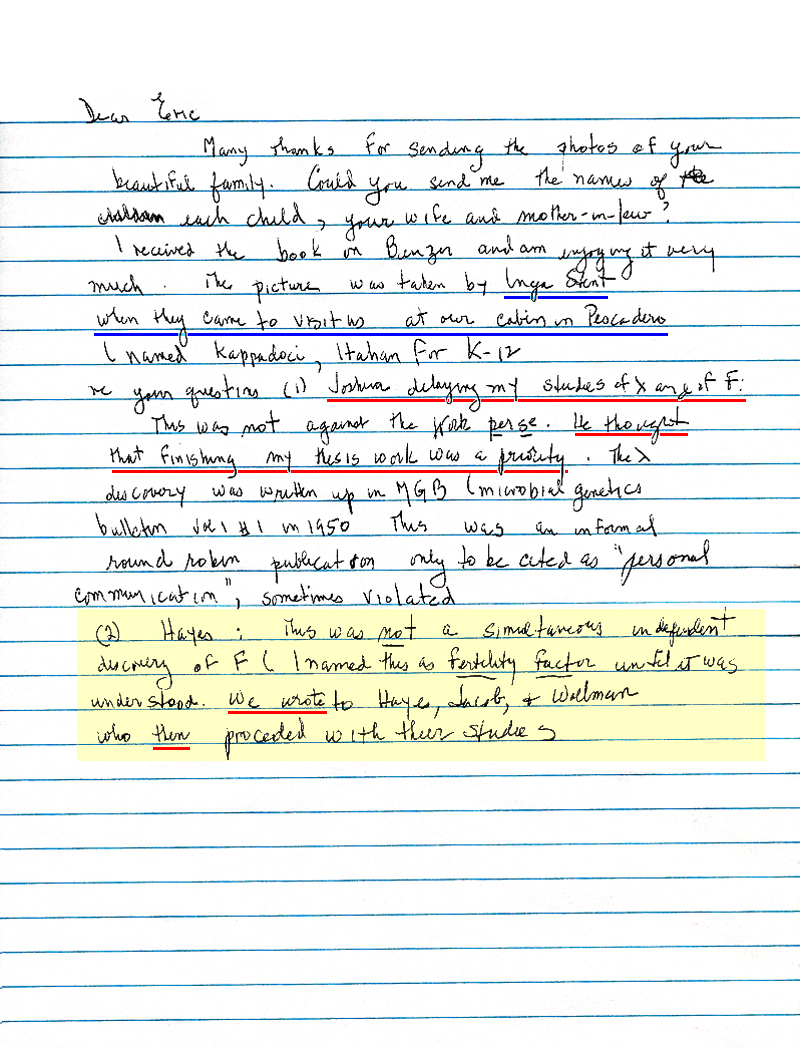 Dear Eric
Many thanks for sending the photos of your
beautiful family. Could you send me the names of the
children each child, your wife and mother-in-law?
I received the book on Benzer and am enjoying it very
much. The picture was taken by Inga Stent
when they came to visit us at our cabin in Pescadero
(named Kappadoci, Italian for K-12
re your questions (1) Joshua delaying my studies of λ and of F:
This was not against the work per se. He thought
that finishing my thesis work was a priority. The λ
discovery was written up in MGB (microbial genetics
bulletin vol 1 #1 in 1950 This was an informal
round robin publication only to be cited as "personal
communication", sometimes violated
(2) Hayes: This was not a simultaneous independent
discovery of F (I named this as fertility factor until it was
understood. We wrote to Hayes, Jacob, & Wollman
who then proceded with their studies